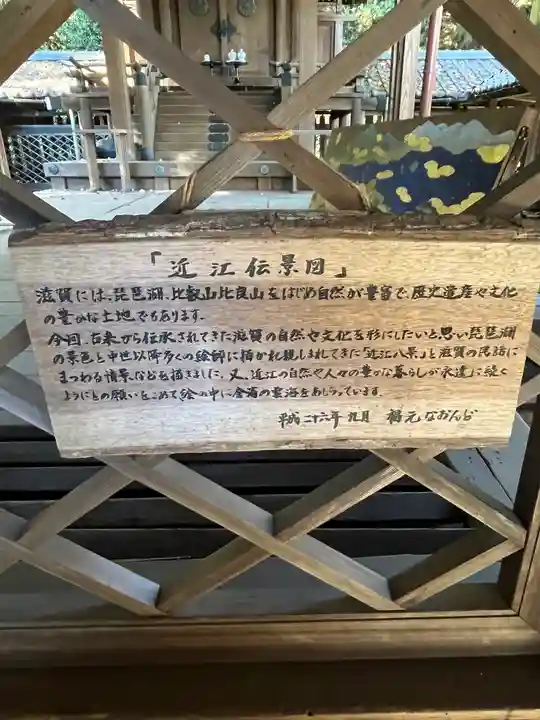 「近江伝景図」
滋賀には、琵琶湖、比叡山比良山をはじめ自然が豊富で、歴史遺産や文化
の豊かな土地でもあります。
今回、古来から伝承されてきた滋賀の自然や文化を形にしたいと思い琵琶湖
の景色と中世以降多くの絵師に描かれ親しまれてきた「近江八景」と滋賀の民話に
まつわる情景などを描きました。又、近江の自然や人々の豊かな暮らしが永遠に続く
ようにとの願いをこめて絵の中に金箔の雲海をあしらっています。
平成二十六年 九月 福元なおんど